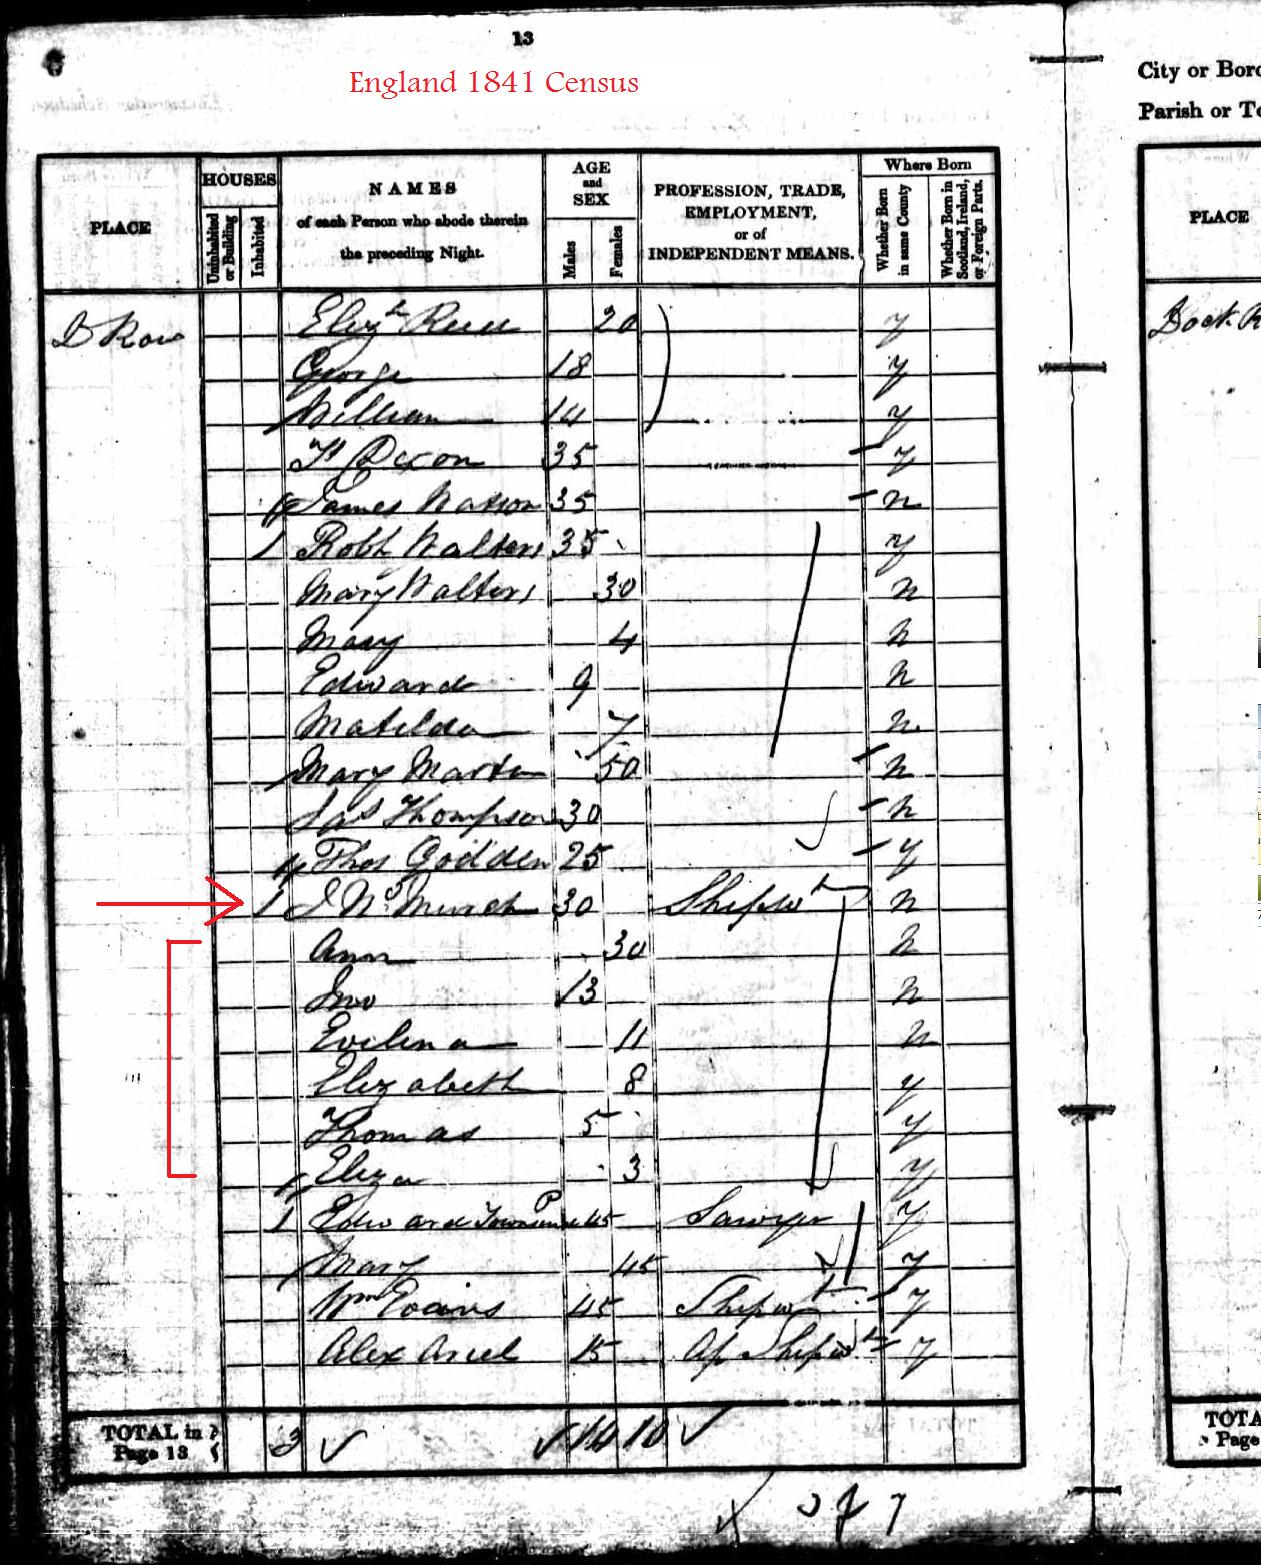 13
England 1841 Census
City or Boro
Parish or To
PLACE
HOUSES
Uninhabited or Building
Inhabited
NAMES
of each Person who abode therein
the preceding Night.
AGE
and
SEX
Males
Females
PROFESSION, TRADE,
EMPLOYMENT,
or of
INDEPENDENT MEANS.
Where Born
Whether Born in same County
Whether Born in Scotland, Ireland, or Foreign Parts.
PLACE
D Row Elizth 20 y
George 18 y
William 14 y
Dixon 35 y
James Watson 35 n
1 Robt Walters 35 y
Mary Walters 30 n
Mary 4 n
Edward 9 n
Matilda 7 n
Mary Martin 50 n
Jas Thompson 30 n
Thos Godden 25 y
1 Jno Murch 30 Shipwt n
Ann 30 n
Jno 13 n
Evelina 11 n
Elizabeth 8 y
Thomas 5 y
Eliza 3 y
1 Edward 45 Sawyer y
Mary 45 y
Wm Evans 45 Shipwt y
Alex 15 Ap Shipwt y
Dock R
TOTAL in
Page 13
3 14 10
TOTA
Page